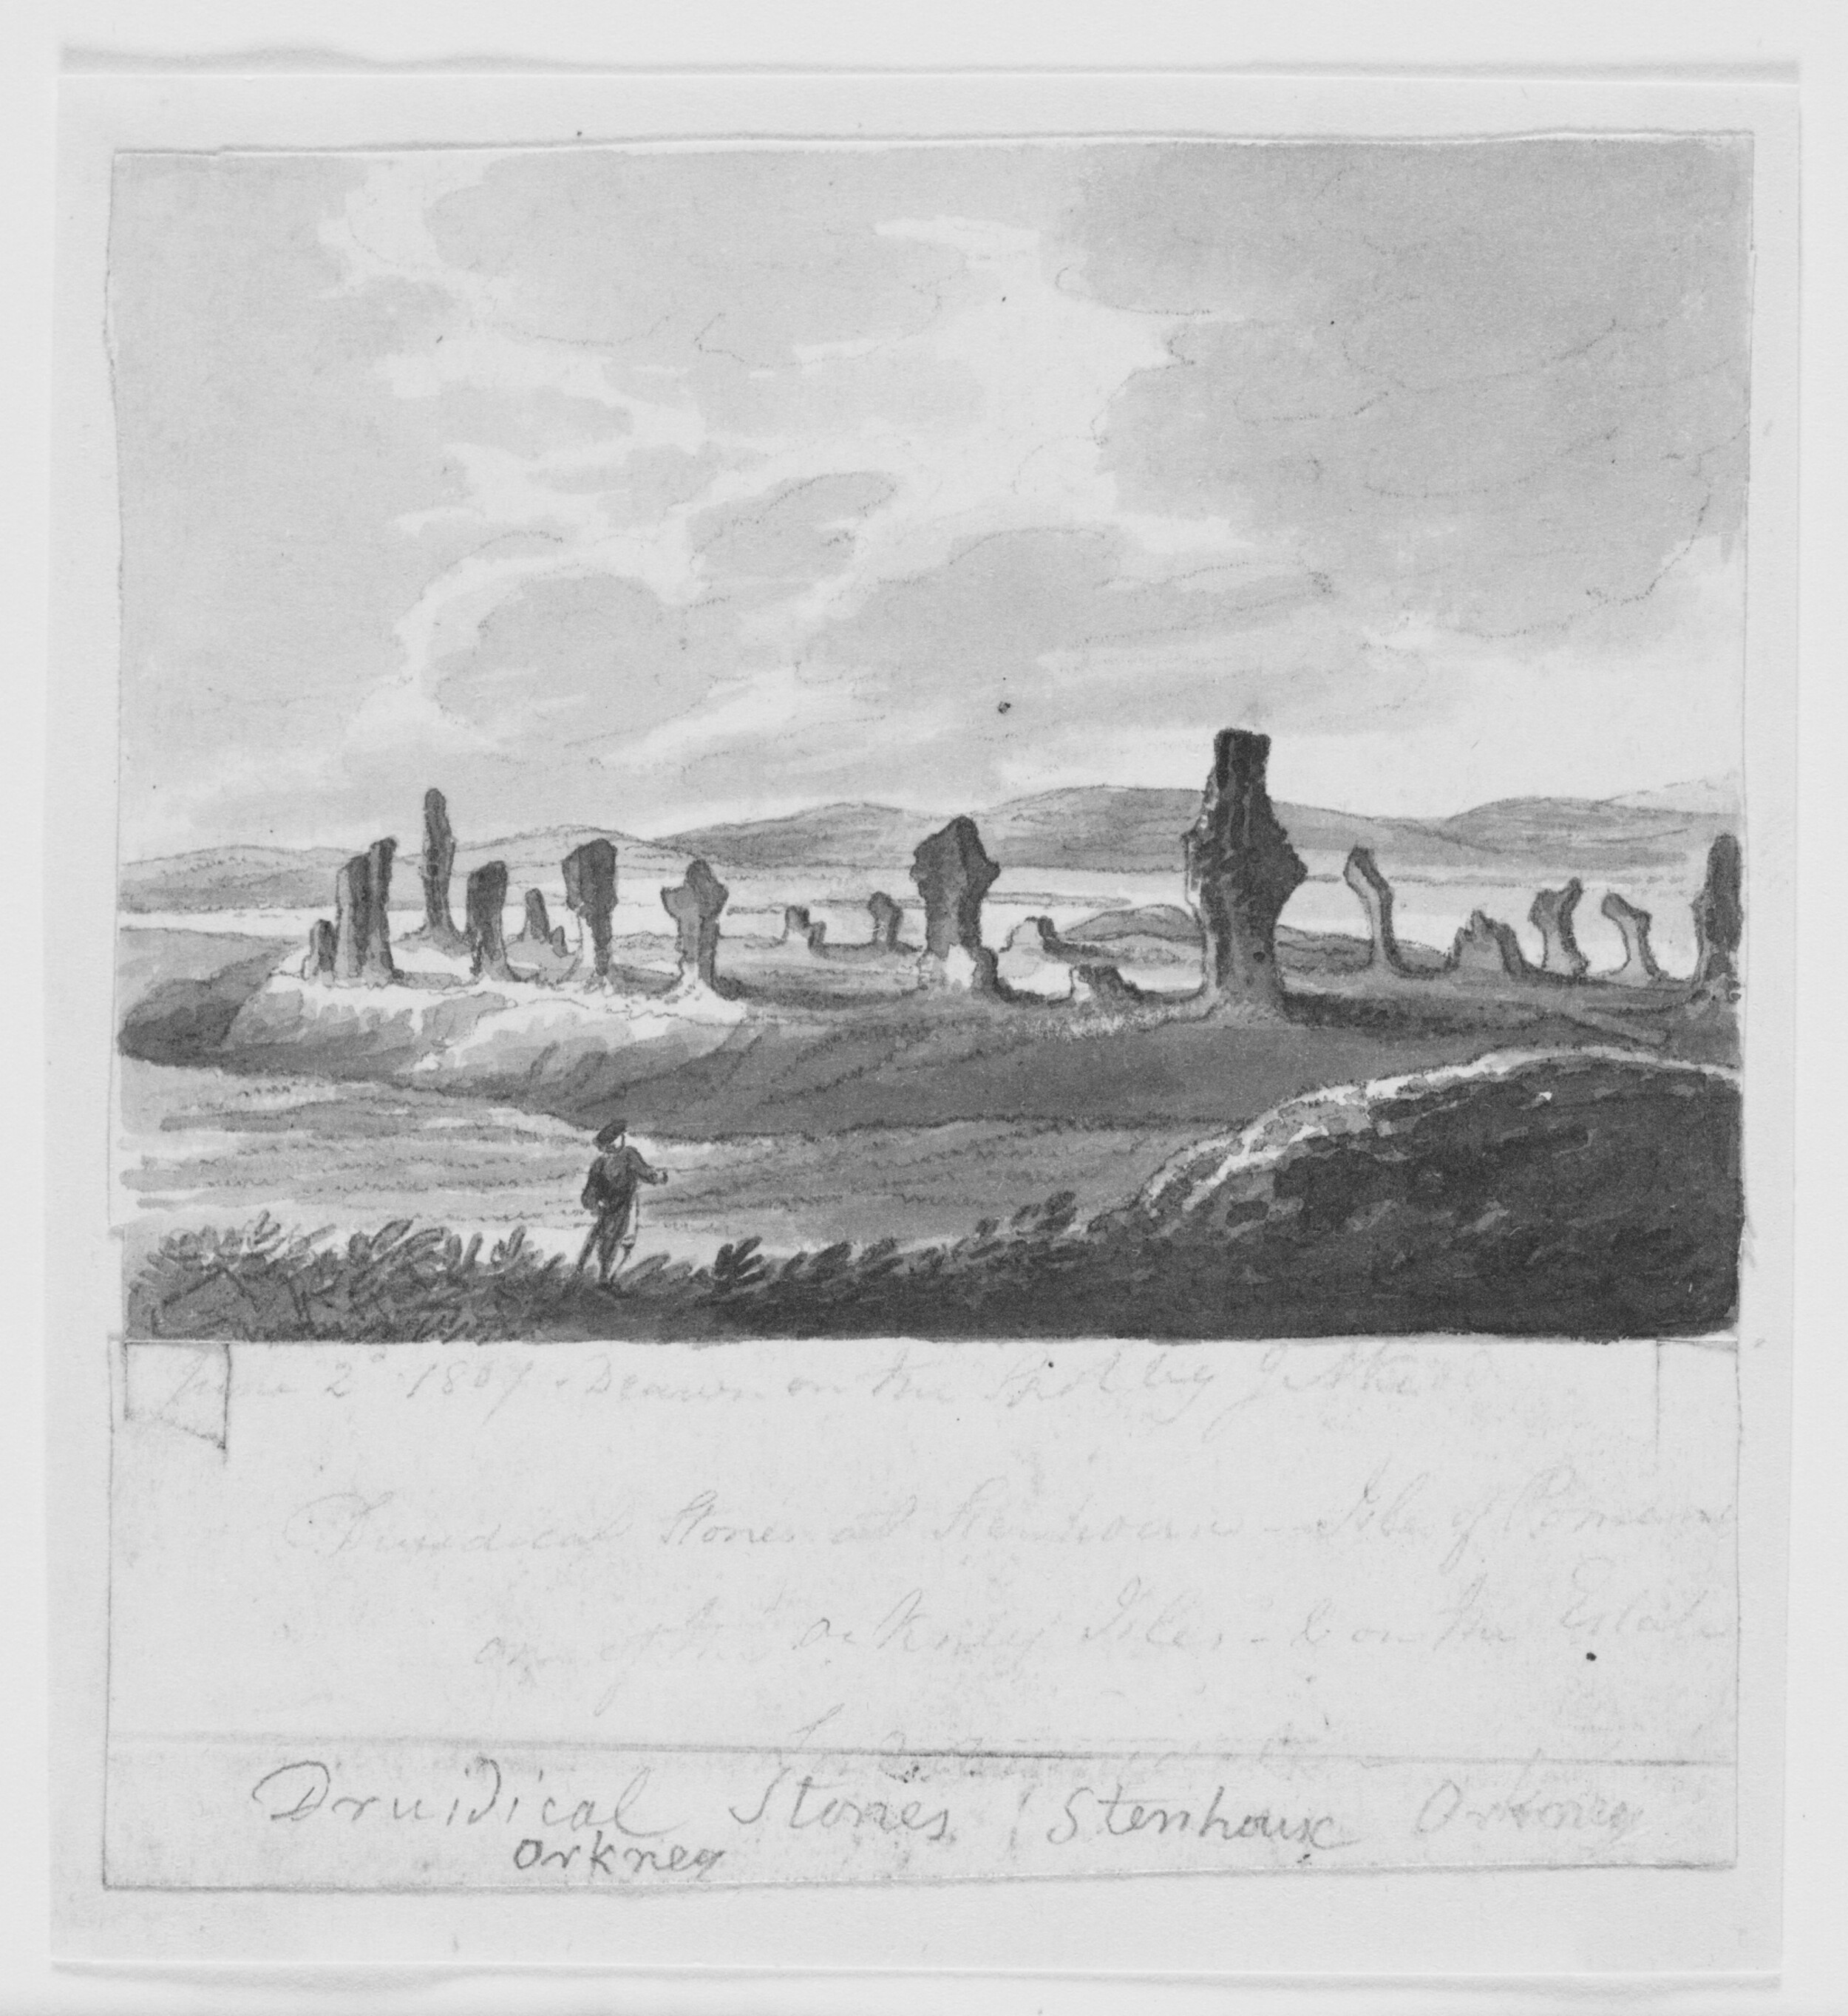 June 2d 1807 - Drawn on the Spot by
Druidical Stones at Stenhouse - Isle of Pomona
one of the Orkney Isles - & on the Estate
Druidical Stones Stenhouse Orkney
Orkney